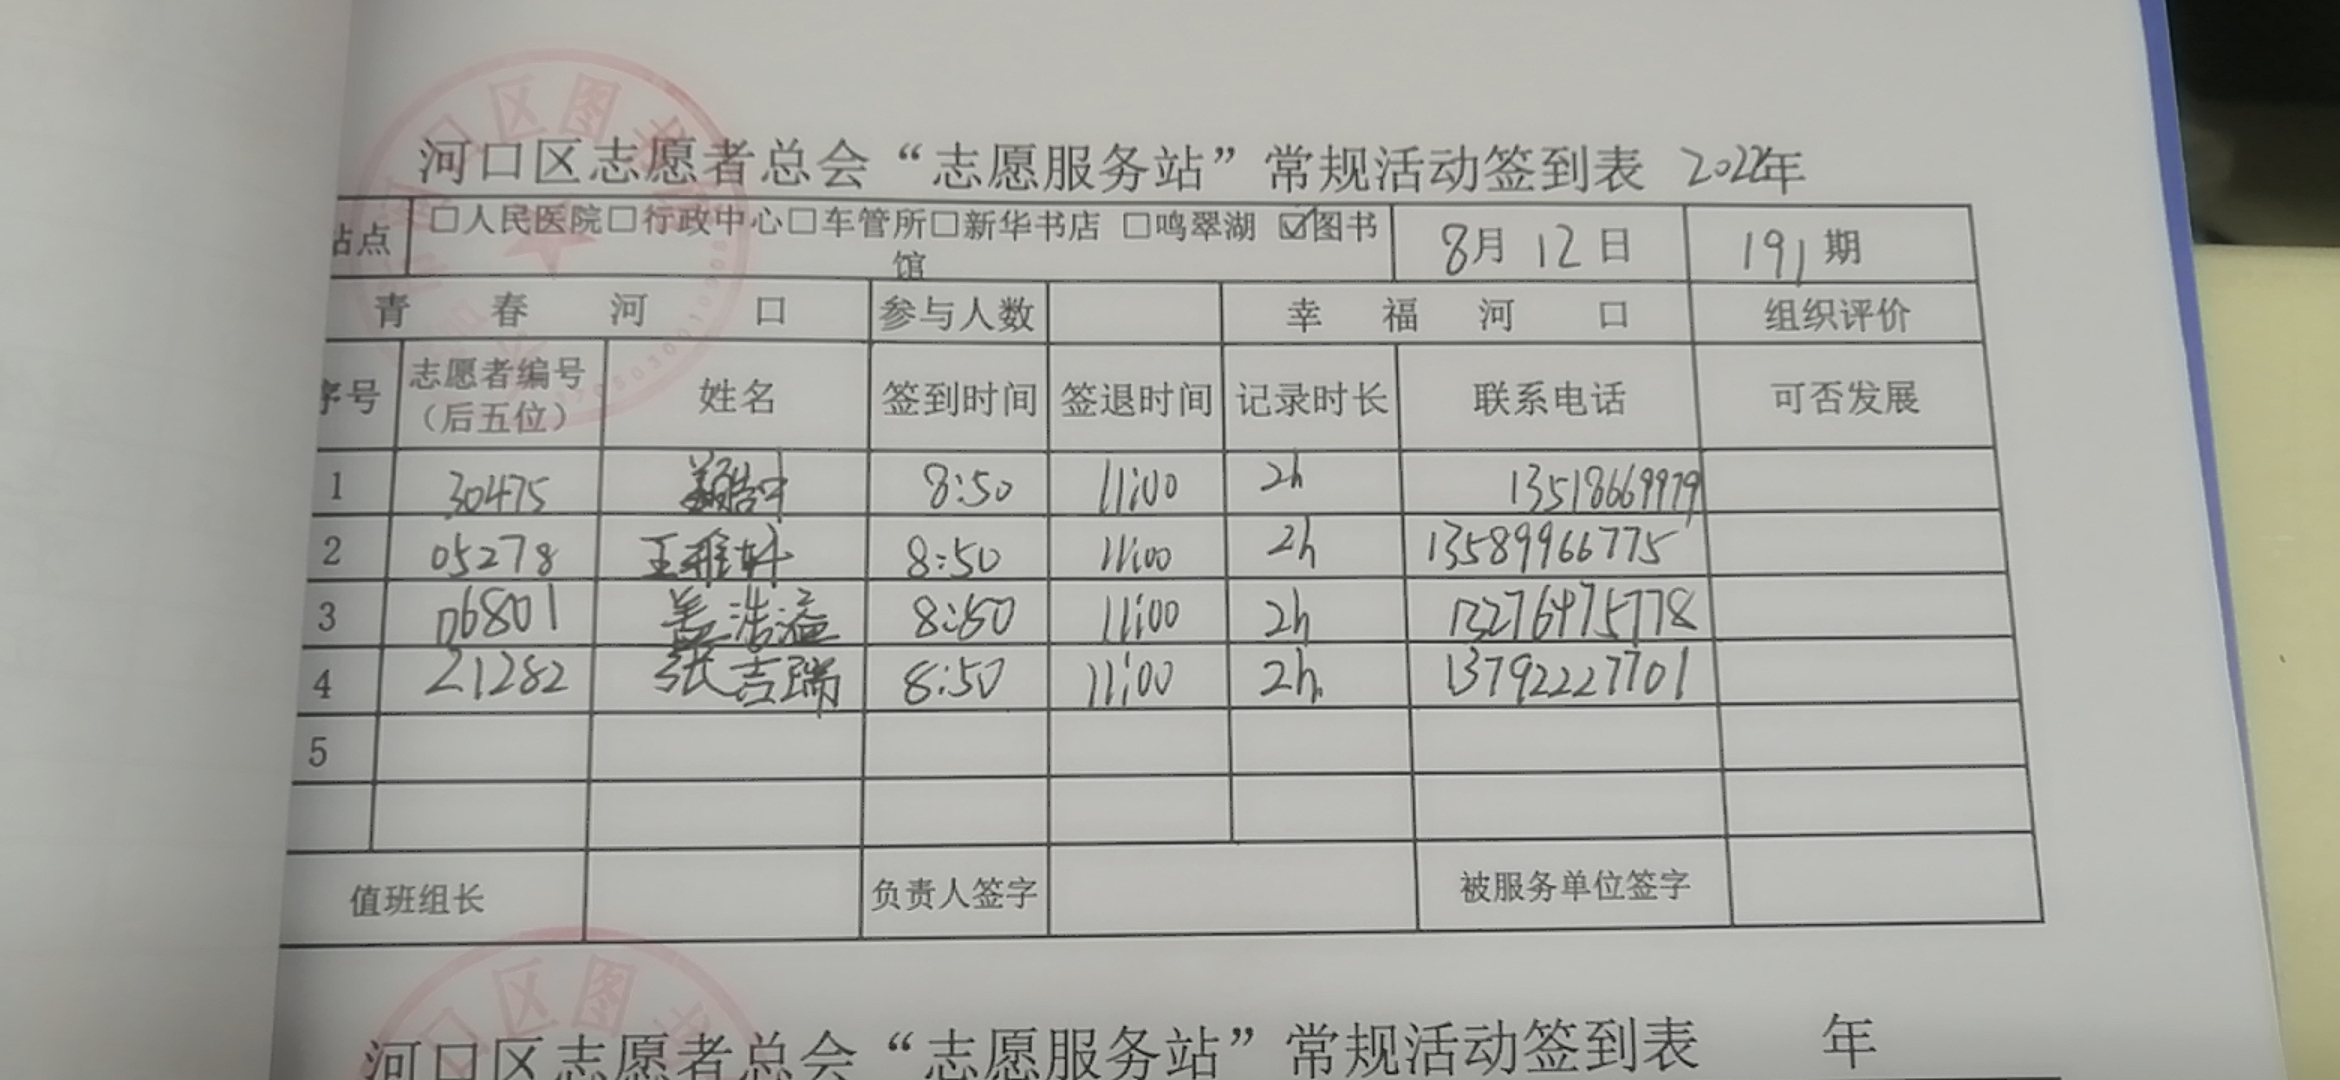 河口区志愿者总会“志愿服务站”常规活动签到表 2022年
站点 □人民医院□行政中心□车管所□新华书店 □鸣翠湖 ☑图书馆 8月12日 191期
青春河口 参与人数 幸福河口 组织评价
序号 志愿者编号（后五位） 姓名 签到时间 签退时间 记录时长 联系电话 可否发展
1 30475 8:50 11:00 2h 13518669979
2 05278 王雅轩 8:50 11:00 2h 13589966775
3 06801 盖浩溢 8:50 11:00 2h 13276475778
4 21282 张吉瑞 8:50 11:00 2h 13792227701
5
值班组长 负责人签字 被服务单位签字
区图
河口区志愿者总会“志愿服务站”常规活动签到表 年